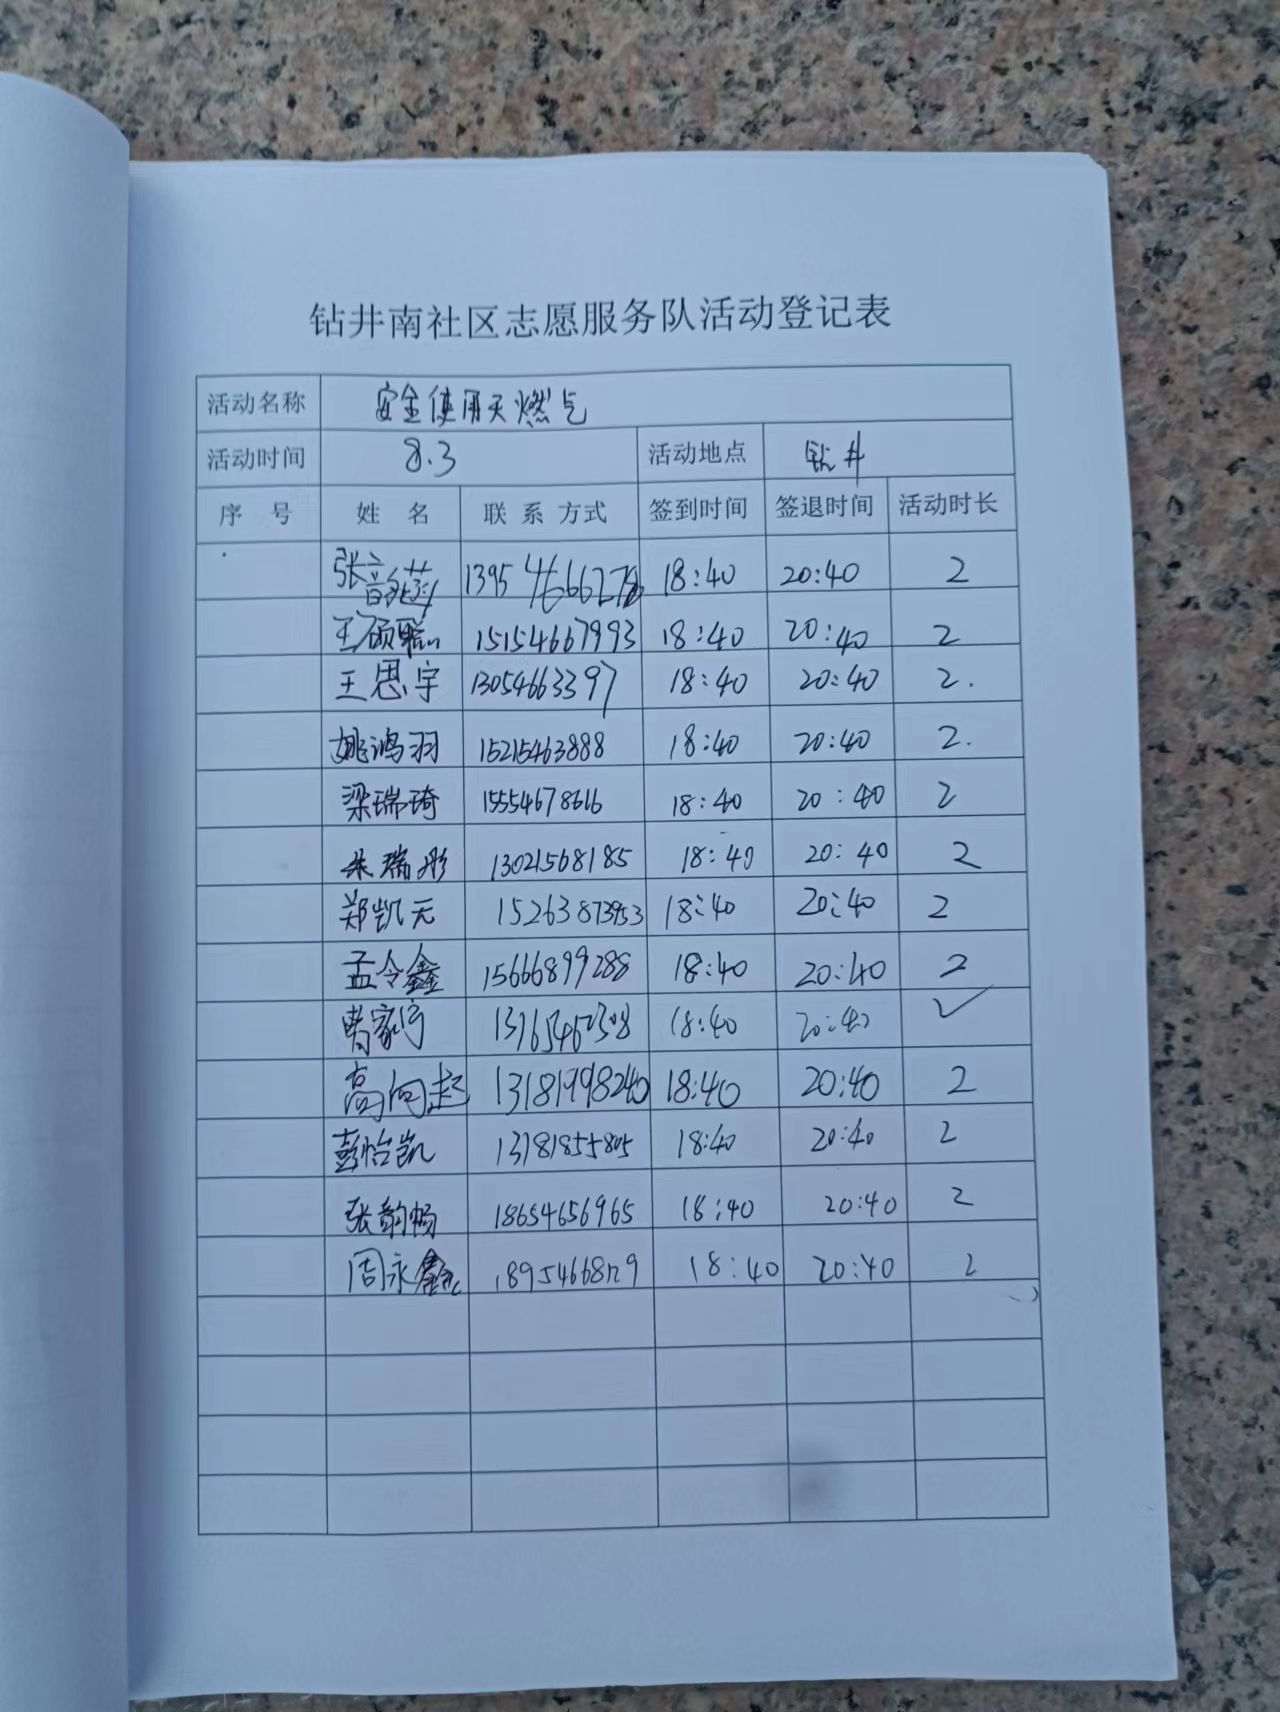 钻井南社区志愿服务队活动登记表
活动名称 安全使用天燃气
活动时间 8.3 活动地点 钻井
序 号 姓 名 联 系 方式 签到时间 签退时间 活动时长
张韵莚 13954666278 18:40 20:40 2
王硕聪 15154667993 18:40 20:40 2
王思宇 13054663397 18:40 20:40 2.
姚鸿羽 15215463888 18:40 20:40 2.
梁瑞琦 15554678616 18:40 20:40 2
朱瑞彤 13021568185 18:40 20:40 2
郑凯元 15263873953 18:40 20:40 2
孟令鑫 15666899288 18:40 20:40 2
曹家宁 18:40 20:40 ✓
高向起 13181998240 18:40 20:40 2
彭怡凯 18:40 20:40 2
张韵畅 18654656965 18:40 20:40 2
周永鑫 18:40 20:40 2